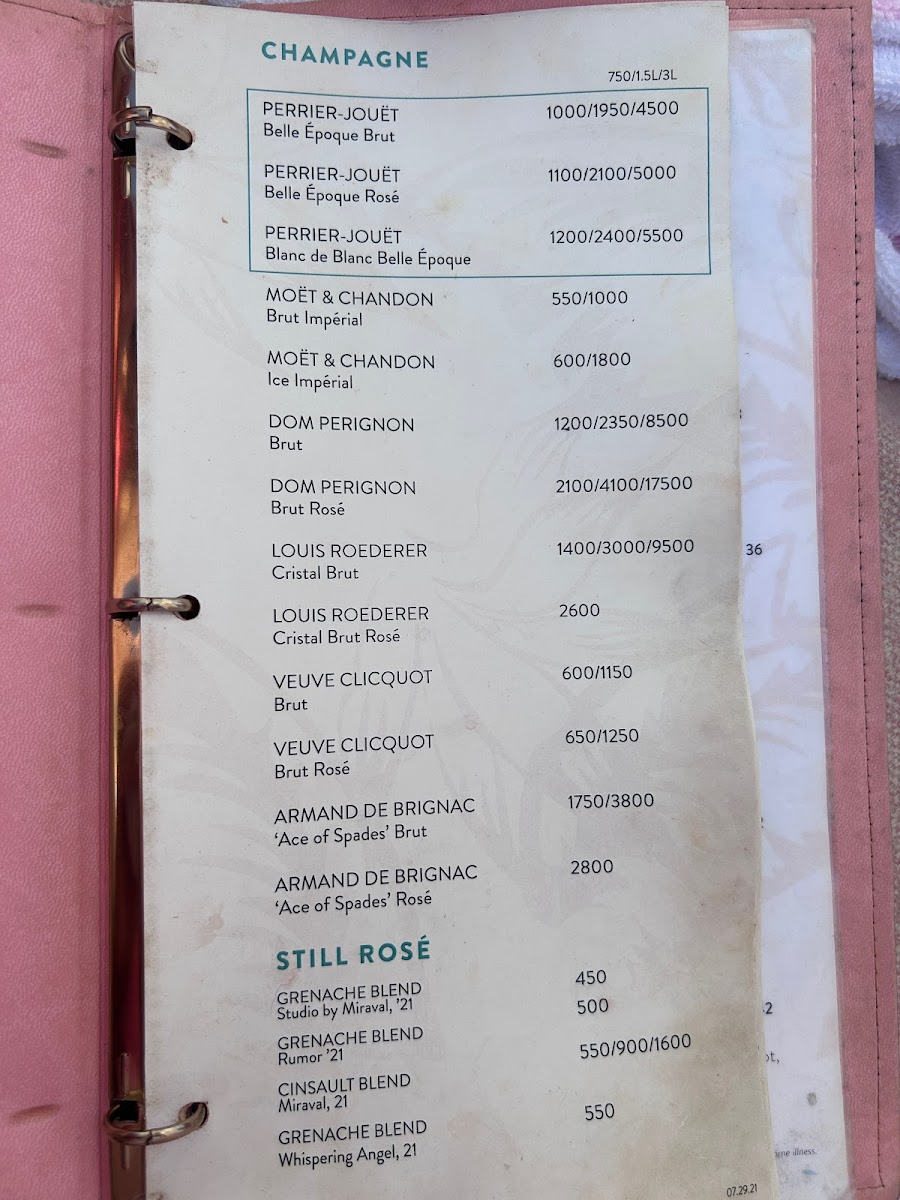 CHAMPAGNE
750/1.5L/3L
PERRIER-JOUËT 1000/1950/4500
Belle Époque Brut
PERRIER-JOUËT 1100/2100/5000
Belle Époque Rosé
PERRIER-JOUËT 1200/2400/5500
Blanc de Blanc Belle Époque
MOËT & CHANDON 550/1000
Brut Impérial
MOËT & CHANDON 600/1800
Ice Impérial
DOM PERIGNON 1200/2350/8500
Brut
DOM PERIGNON 2100/4100/17500
Brut Rosé
LOUIS ROEDERER 1400/3000/9500
Cristal Brut
LOUIS ROEDERER 2600
Cristal Brut Rosé
VEUVE CLICQUOT 600/1150
Brut
VEUVE CLICQUOT 650/1250
Brut Rosé
ARMAND DE BRIGNAC 1750/3800
‘Ace of Spades’ Brut
ARMAND DE BRIGNAC 2800
‘Ace of Spades’ Rosé
STILL ROSÉ
GRENACHE BLEND 450
Studio by Miraval, ’21 500
GRENACHE BLEND
Rumor ’21 550/900/1600
CINSAULT BLEND
Miraval, 21
GRENACHE BLEND 550
Whispering Angel, 21
07.29.21
36
illness.